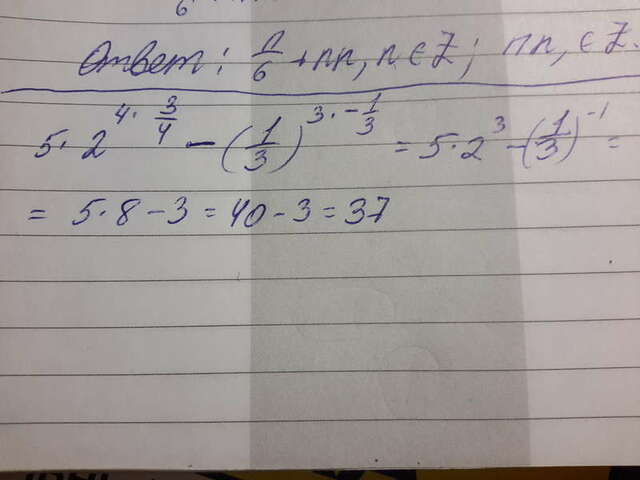 6
Ответ: π/6 + πn, n ∈ Z; πn, ∈ Z.
5·2^(4·3/4) − (1/3)^(3·−1/3) = 5·2^3 − (1/3)^(−1) =
= 5·8 − 3 = 40 − 3 = 37